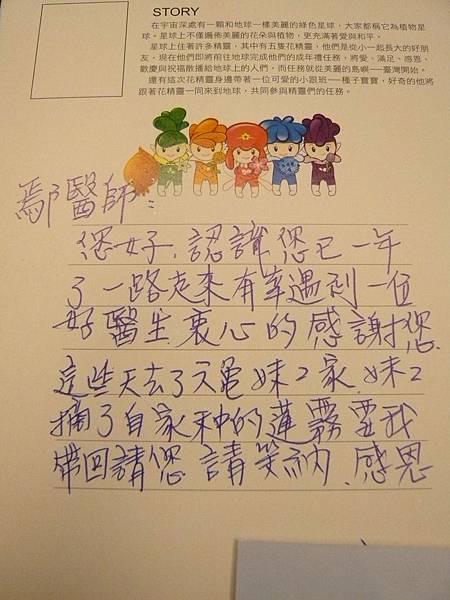 STORY
在宇宙深處有一顆和地球一樣美麗的綠色星球，大家都稱它為植物星
球。星球上不僅遍佈美麗的花朵與植物，更充滿著愛與和平。
星球上住著許多精靈，其中有五隻花精靈，他們是從小一起長大的好朋
友，現在他們即將前往地球完成他們的成年禮任務，將愛、滿足、感恩、
歡慶與祝福散播給地球上的人們，而任務就從美麗的島嶼──臺灣開始。
還有這次花精靈身邊帶著一位可愛的小跟班──種子寶寶，好奇的他將
跟著花精靈一同來到地球，共同參與精靈們的任務。
鄢醫師：
您好，認識您已一年
了一路走來有幸遇到一位
好醫生衷心的感謝您
這些天去了 妹妹家，妹妹
摘了自家种的蓮霧要我
帶回請您 請笑納，感恩